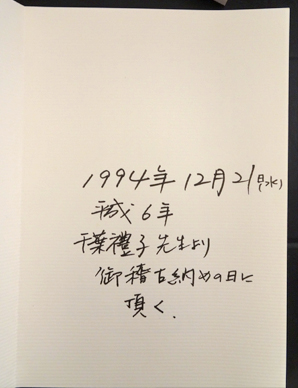 1994年 12月21日(水)
平成6年
千葉禮子先生より
御稽古納めの日に
頂く.